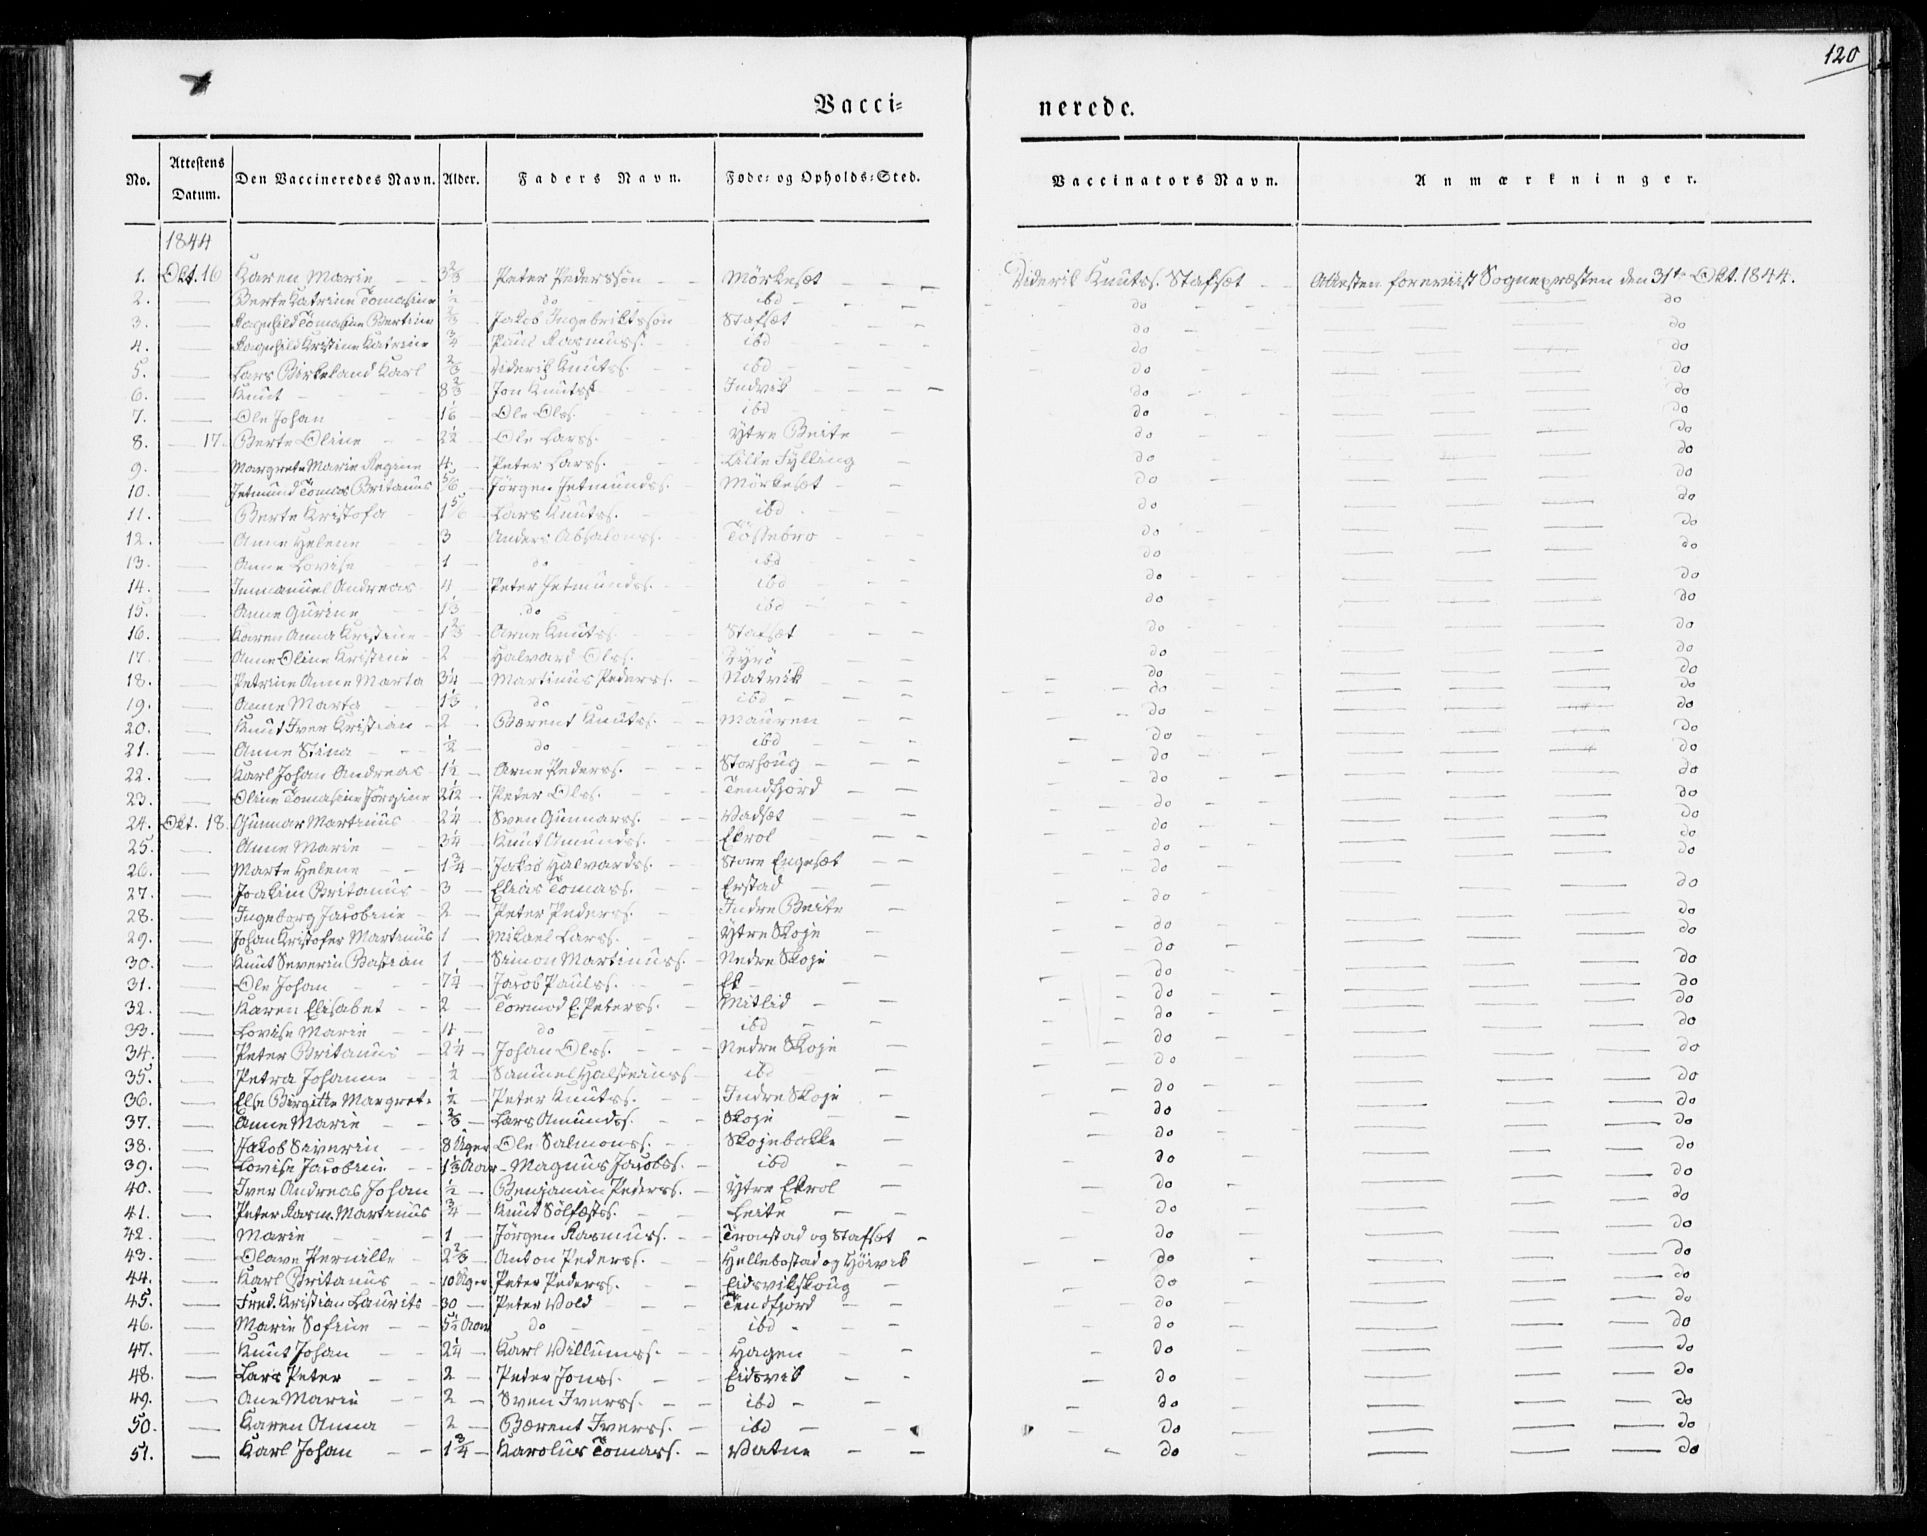 120
Vacci= nerede.
No. Attestens Datum. Den Vaccineredes Navn. Alder. Faders Navn. Føde= og Opholds=Sted. Vaccinators Navn. Anmærkninger.
1844
1. Okt. 16 Karen Marie 3 2/3 Peter Pederssön Mörkesæt Diderik Knutss. Stafsæt Attesten foreviist Sognepræsten den 31te Okt. 1844.
2. — Berte Katrine Tomasine 1/2 do ibd do do
3. — Ragnhild Tomasine Bertine 2/3 Jakob Ingebriktssön Stafsæt do do
4. — Ragnhild Kristine Katrine 3/4 Paul Rasmuss. ibd do do
5. — Lars Birkeland Karl 2/3 Diderik Knutss. ibd do do
6. — Knut 8 2/3 Jon Knutss. Indvik do do
7. — Ole Johan 1 1/6 Ole Olss. ibd do do
8. — 17. Berte Oline 2 1/2 Ole Larss. Ytre Beite do do
9. — Margrete Marie Regine 4 Peter Larss. Lille Fylling do do
10. — Jetmund Tomas Britanus 5/6 Jörgen Jetmundss. Mörkesæt do do
11. — Berte Kristofa 1 5/6 Lars Knutss. ibd do do
12. — Anne Helene 3 Anders Absalonss. Tössebro do do
13. — Anne Lovise 1 do ibd do do
14. — Immanuel Andreas 4 Peter Jetmundss. ibd do do
15. — Anne Gurine 1 1/3 do ibd do do
16. — Karen Anna Kristine 1 2/3 Arne Knutss. Stafsæt do do
17. — Anne Oline Kristine 2 Halvard Olss. Dyrö do do
18. — Petrine Anne Marta 3 1/4 Martinus Pederss. Natvik do do
19. — Anne Marta 1 1/3 do ibd do do
20. — Knut Iver Kristian 2 Bærent Knutss. Mauren do do
21. — Anne Stina 1/2 do ibd do do
22. — Karl Johan Andreas 1 1/2 Arne Pederss. Storhoug do do
23. — Oline Tomasine Jörgine 2 1/2 Peter Olss. Tendfjord do do
24. Okt. 18. Gunnar Martinus 2 1/4 Sven Gunnarss. Vadsæt do do
25. — Anne Marie 3 1/4 Knut Amundss. Ekrol do do
26. — Marte Helene 1 3/4 Jakob Halvardss. Store Engesæt do do
27. — Joakim Britanus 3 Elias Tomass. Erstad do do
28. — Ingeborg Jacobine 2 Peter Pederss. Indre Beite do do
29. — Johan Kristofer Martinus 1 Mikael Larss. Ytre Skoje do do
30. — Knut Severin Bastian 1 Simon Martinuss. Nedre Skoje do do
31. — Ole Johan 7 1/4 Jacob Paulss. Ek do do
32. — Karen Elisabet 2 Tormod E. Peterss. Mitlid do do
33. — Lovise Marie 4 do ibd do do
34. — Peter Britanus 2 1/4 Johan Olss. Nedre Skoje do do
35. — Petra Johanne 1/2 Samuel Halsteinss. ibd do do
36. — Else Birgitte Margrete 1/2 Peter Knutss. Indre Skoje do do
37. — Anne Marie 2/3 Lars Amundss. Skoje do do
38. — Jakob Severin 8 Uger Ole Salmonss. Skojebakke do do
39. — Lovise Jacobine 1 1/3 Aar Magnus Jacobss. ibd do do
40. — Iver Andreas Johan 1/2 Benjamin Pederss. Ytre Ekrol do do
41. — Peter Rasm. Martinus 3/4 Knut Sölfæstss. Leite do do
42. — Marie 1 Jörgen Rasmuss. Tronstad og Stafsæt do do
43. — Olave Pernille 2 2/3 Anton Pederss. Hellebostad og Höivik do do
44. — Karl Britanus 10 Uger Peter Pederss. Eidsvikskoug do do
45. — Fred. Kristian Laurits 30 Peter Wold Tendfjord do do
46. — Marie Sofine 5 1/2 Aar do ibd do do
47. — Knut Johan 2 1/4 Karl Villumss. Hagen do do
48. — Lars Peter 2 Peder Jonss. Eidsvik do do
49. — Ane Marie 2 Sven Iverss. ibd do do
50. — Karen Anna 2 Bærent Iverss. ibd do do
51. — Karl Johan 1 3/4 Karolus Tomass. Vatne do do